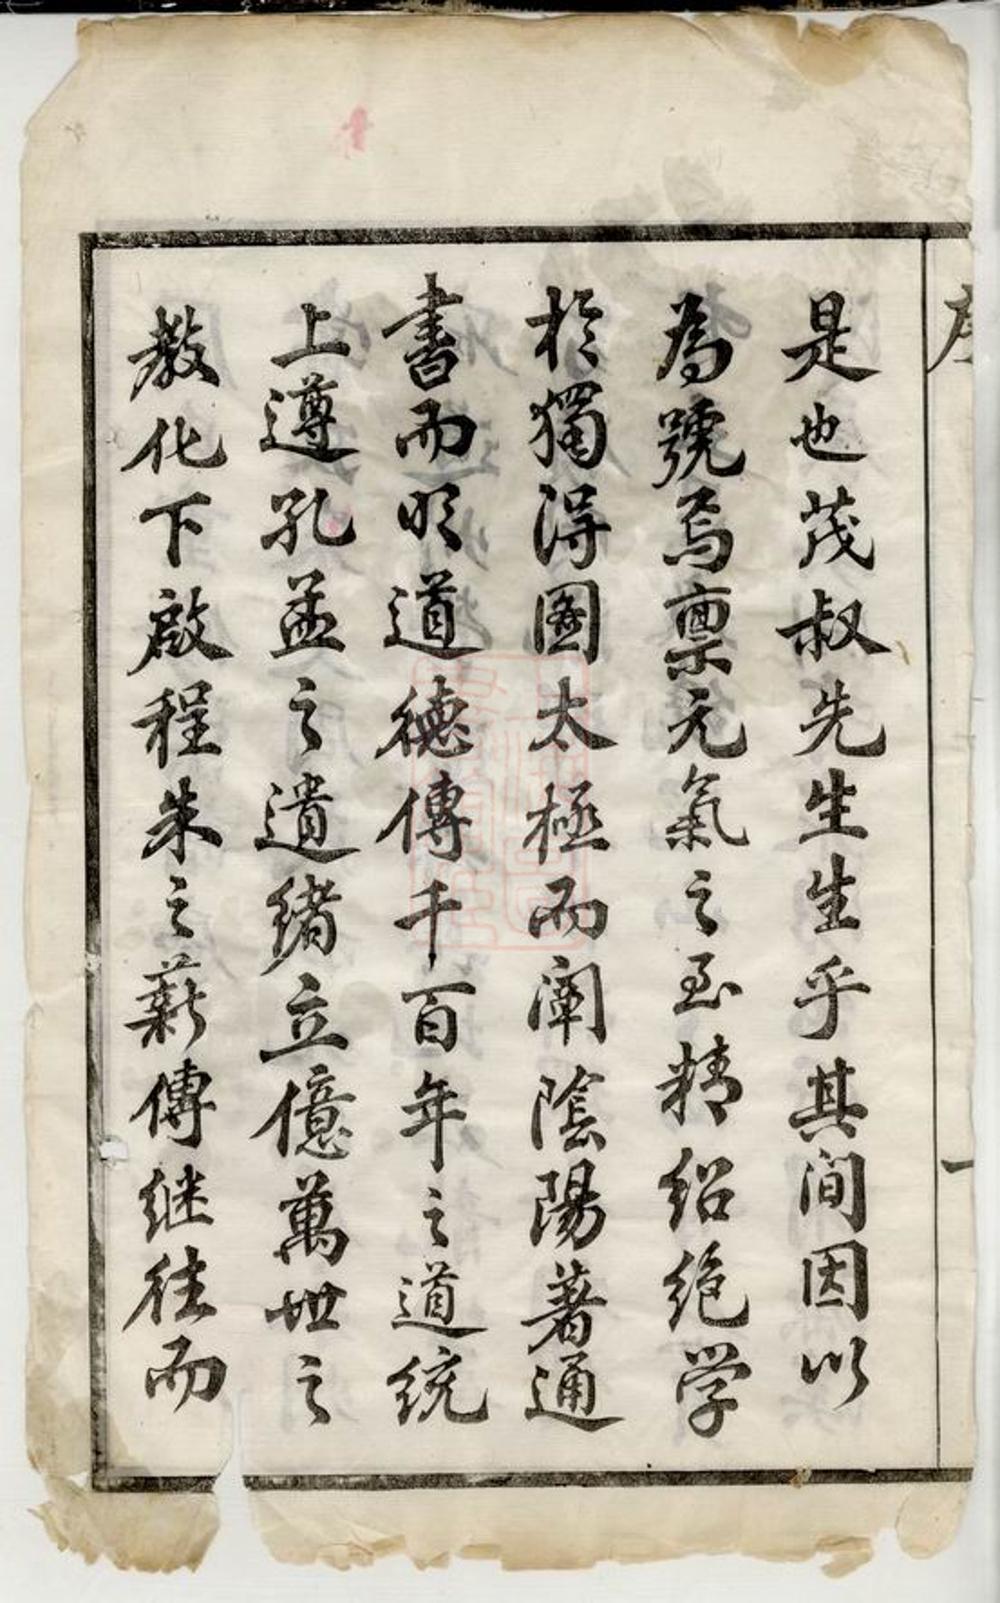 序
一
是也茂叔先生生乎其间因以
為號焉禀元氣之至精紹絶学
扵獨淂圖太極而闡陰陽著通
書而明道德傳千百年之道統
上遵孔孟之遺緒立億萬世之
教化下啟程朱之薪傳继往而